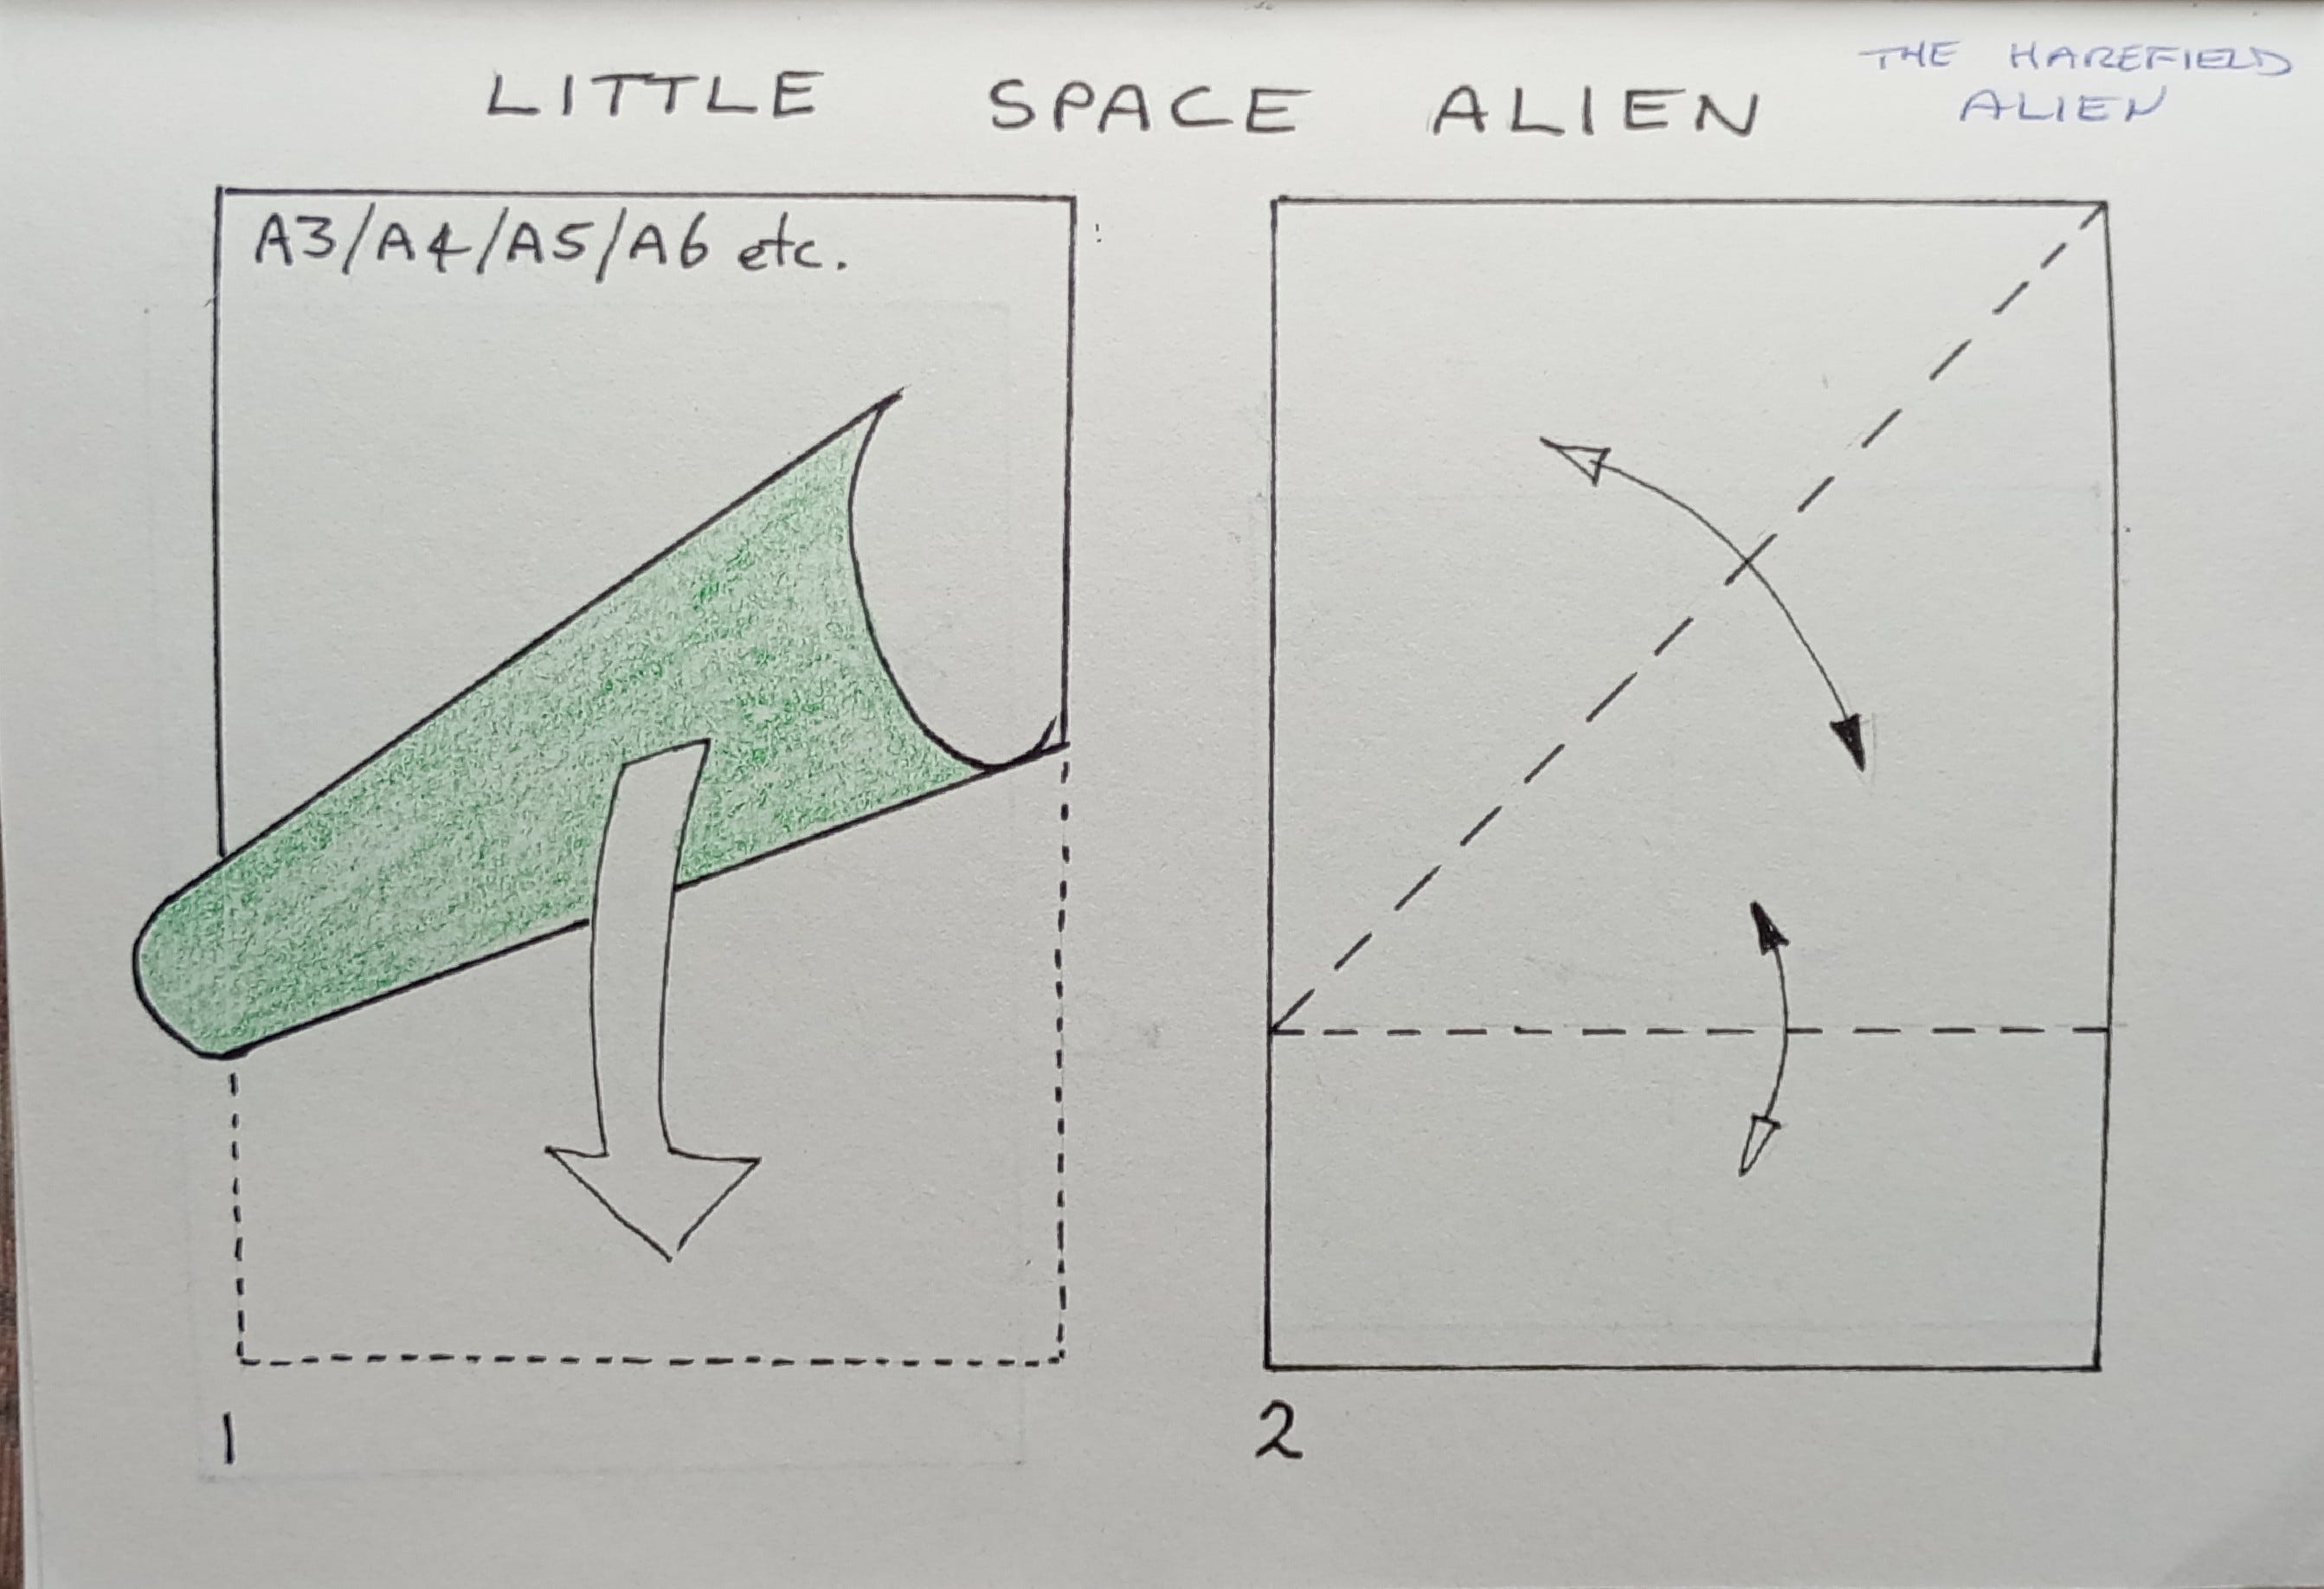 LITTLE SPACE ALIEN
THE HAREFIELD
ALIEN
A3/A4/A5/A6 etc.
1
2